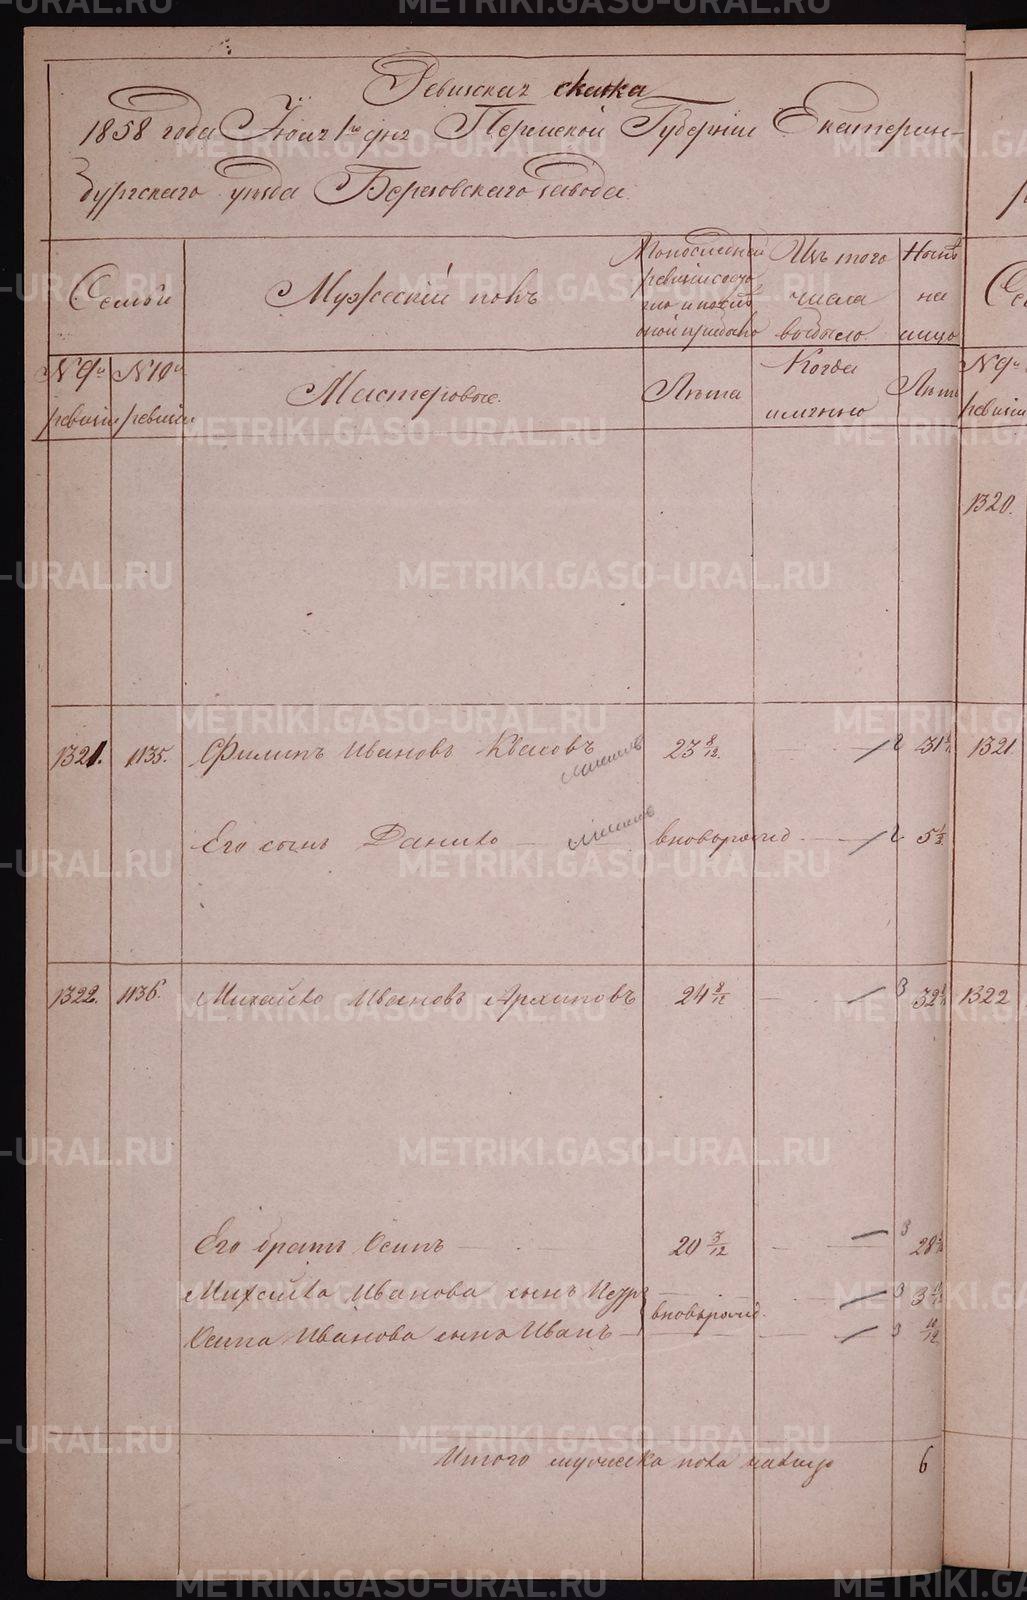 Ревижская сказка
1858 года Июля 1го дня Пермской Губернии Екатерин-
бургскаго уѣзда Березовскаго завода.
Семьи
Мужескій полъ
По послѣдней ревизіи состояло и послѣ оной прибыло
Изъ того числа выбыло
Нынѣ на лицо
№ 9й ревизіи
№ 10й ревизіи
Мастеровые.
Лѣта
Когда именно
Лѣта
№ 9й ревизіи
1320.
1321. 1135. Филипъ Ивановъ Квасовъ 23 8/12. 2 31 1321
Его сынъ Данило вновьрожд 2 5
1322. 1136. Михайло Ивановъ Архиповъ 24 8/12 3 32 1322
Его братъ Осипъ 20 3/12 3 28
Михайла Иванова сынъ Петръ 3 3
вновьрожд.
Осипа Иванова сынъ Иванъ 3 10/12
Итого мужеска пола налицо 6
METRIKI.GASO-URAL.RU